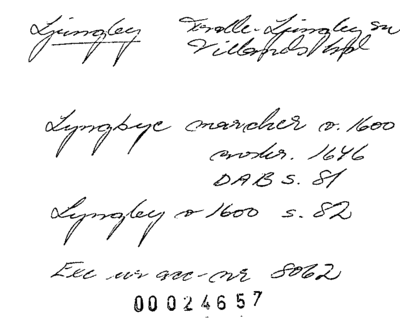 Ljungby Trolle-Ljungby sn
Villands hd
Lyngbye marcker o. 1600
avskr. 1646
DAB s. 81
Lyngbey o 1600 s. 82
Exc ur acc-nr 8062
00024657